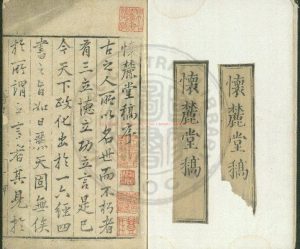 懷麓堂稿
懷麓堂稿
懷麓堂稿序
古之人所以名世而不朽者
有三立德立功立言是已
今天下政化出於一六經四
書之旨如日麗天固無俟
於所謂立言者其見於